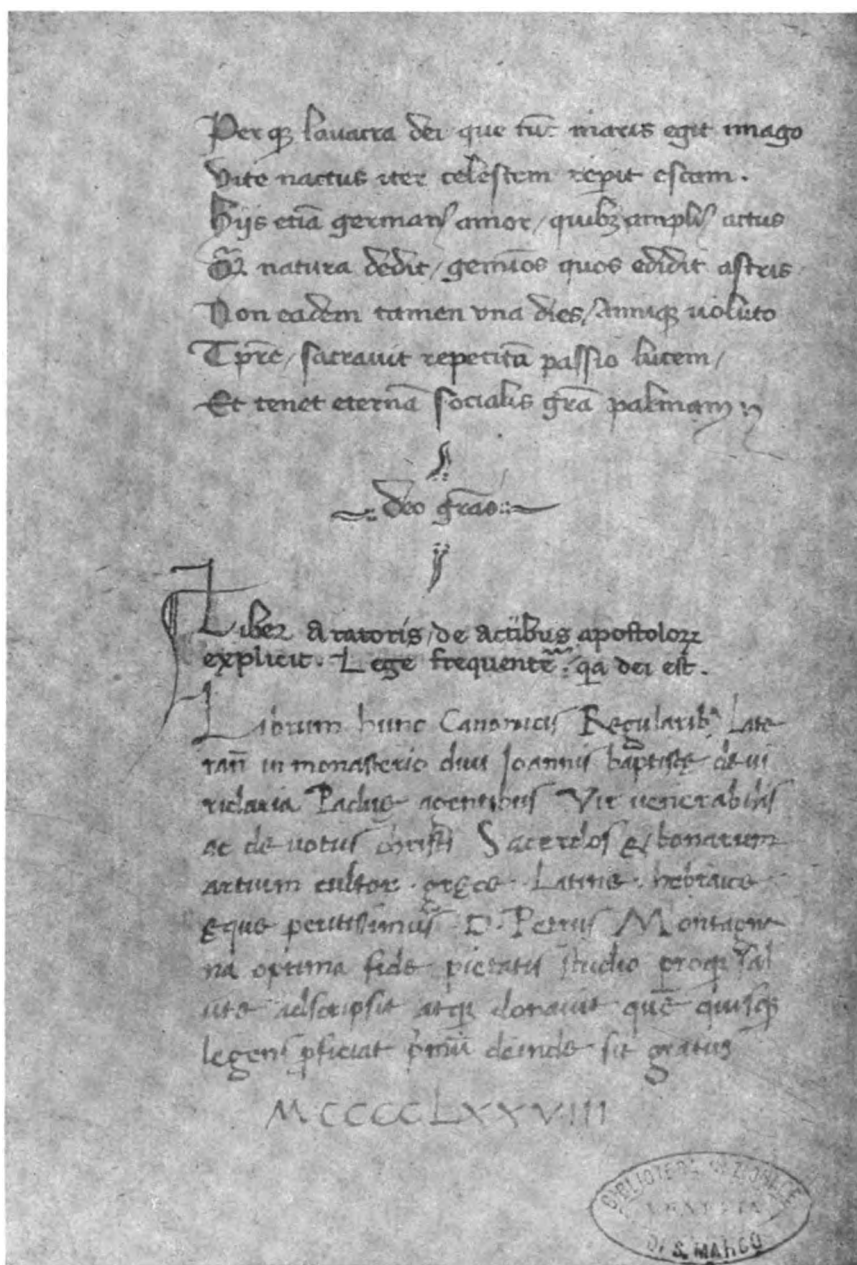 Per qꝫ lauacra dei que tūc maris egit imago
Vite nactus iter celestem repit escam.
Hijs etiā germanꝰ amor / quibꝫ amplꝰ actus
Qᷓ natura dedit / gemios quos edidit astris
Non eadem tamen vna dies / Anniqꝫ uoluto
Tp̄re / sacrauit repetitā passio lucem /
Et tenet eternā socialis grā palmam
deo gr̄as
Liber Aratoris / de actibus apostoloꝝ
explicit. Lege frequentē: qa dei est.
Librum hunc Canonicis Regularibꝰ Late
rañ in monasterio diui Joannis baptistę de ui
ridaria Padue agentibus Vir uenerabilis
ac de uotus christi Sacerdos & bonarum
artium cultor gręce Latine hebraice
ęque peritissimus D. Petrus Montagna
na optima fide pietatis studio proqꝫ sal
ute adscripsit atqꝫ donauit quē quisqꝫ
legens p̱ficiat p̄mū deinde sit gratus
MCCCCLXXVIII
BIBLIOTECA NAZIONALE
VENEZIA
DI S. MARCO